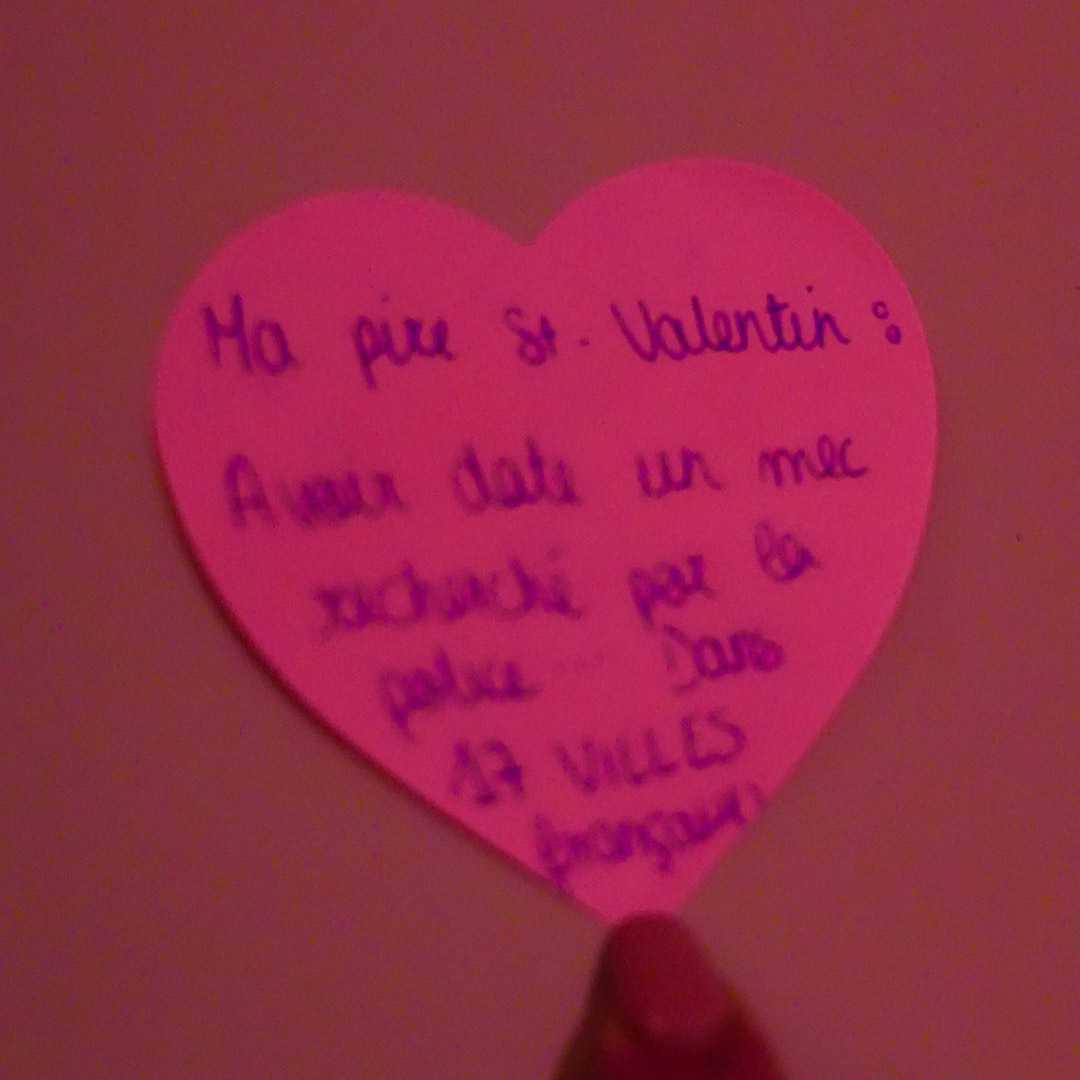 Ma pire St. Valentin :
Avoir date un mec
recherché par la
police ... Dans
17 VILLES
françaises